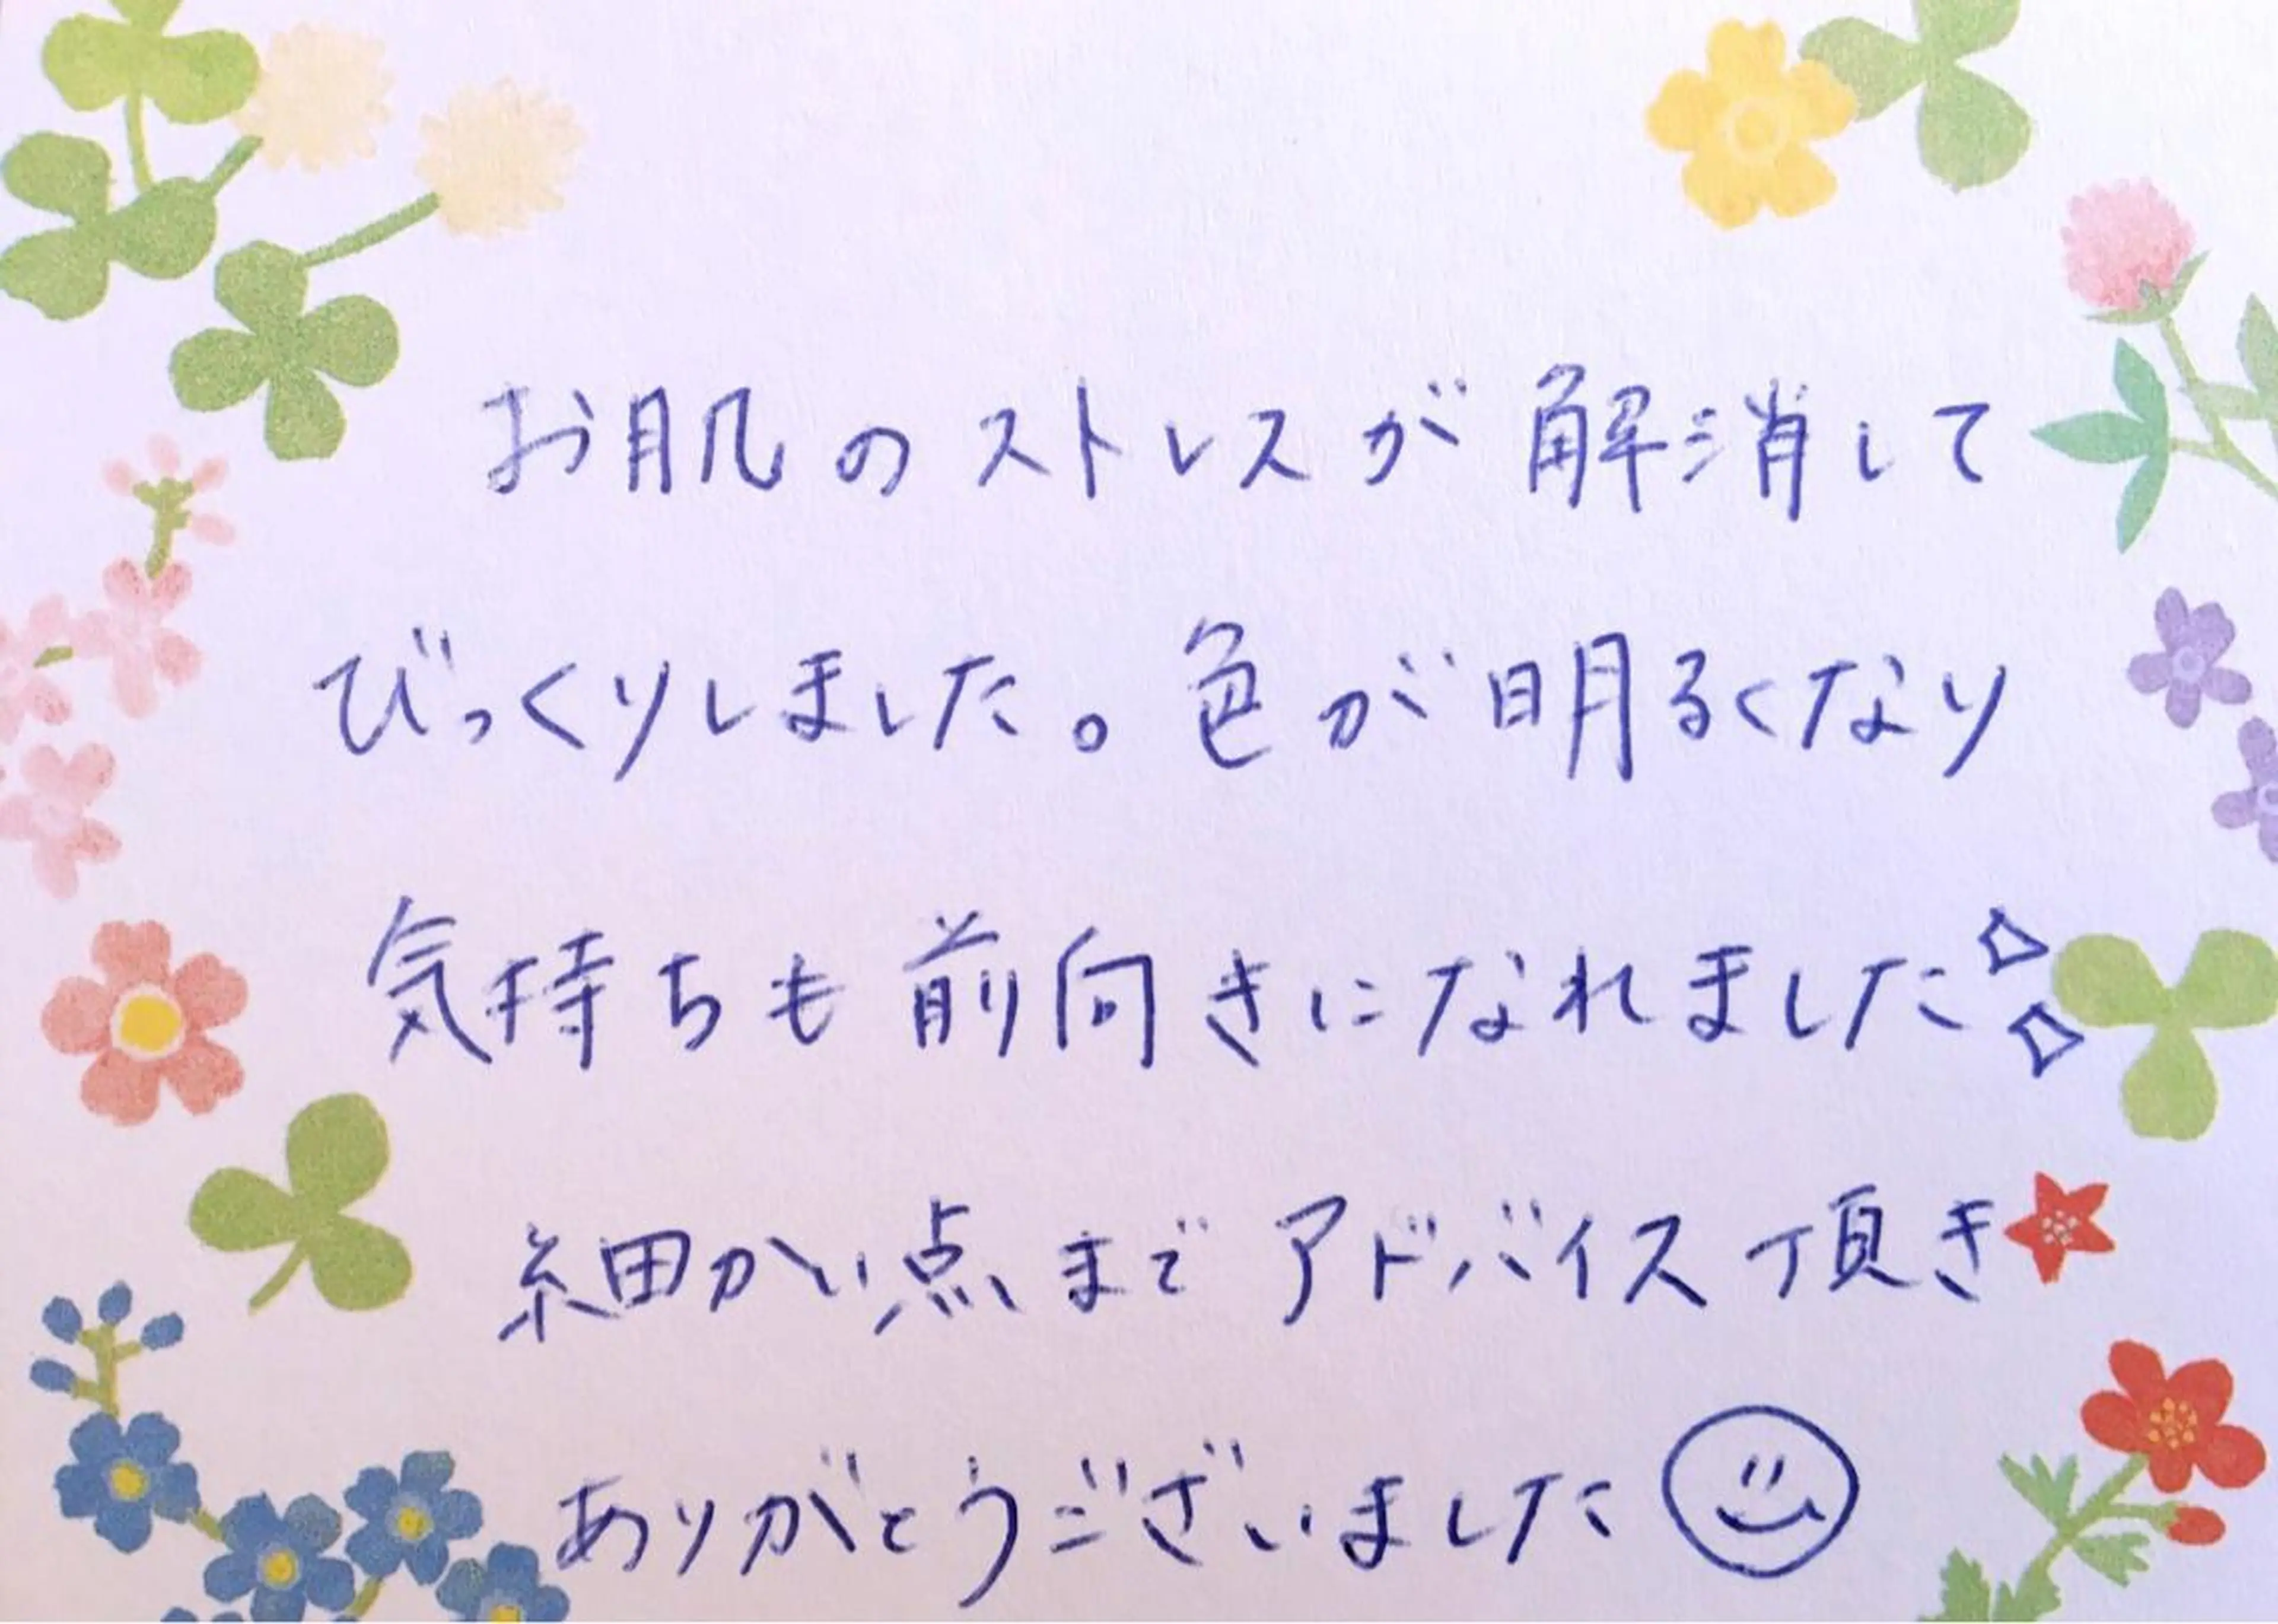 お肌のストレスが解消して
びっくりしました。色が明るくなり
気持ちも前向きになれました
細かい点までアドバイス頂き
ありがとうございました